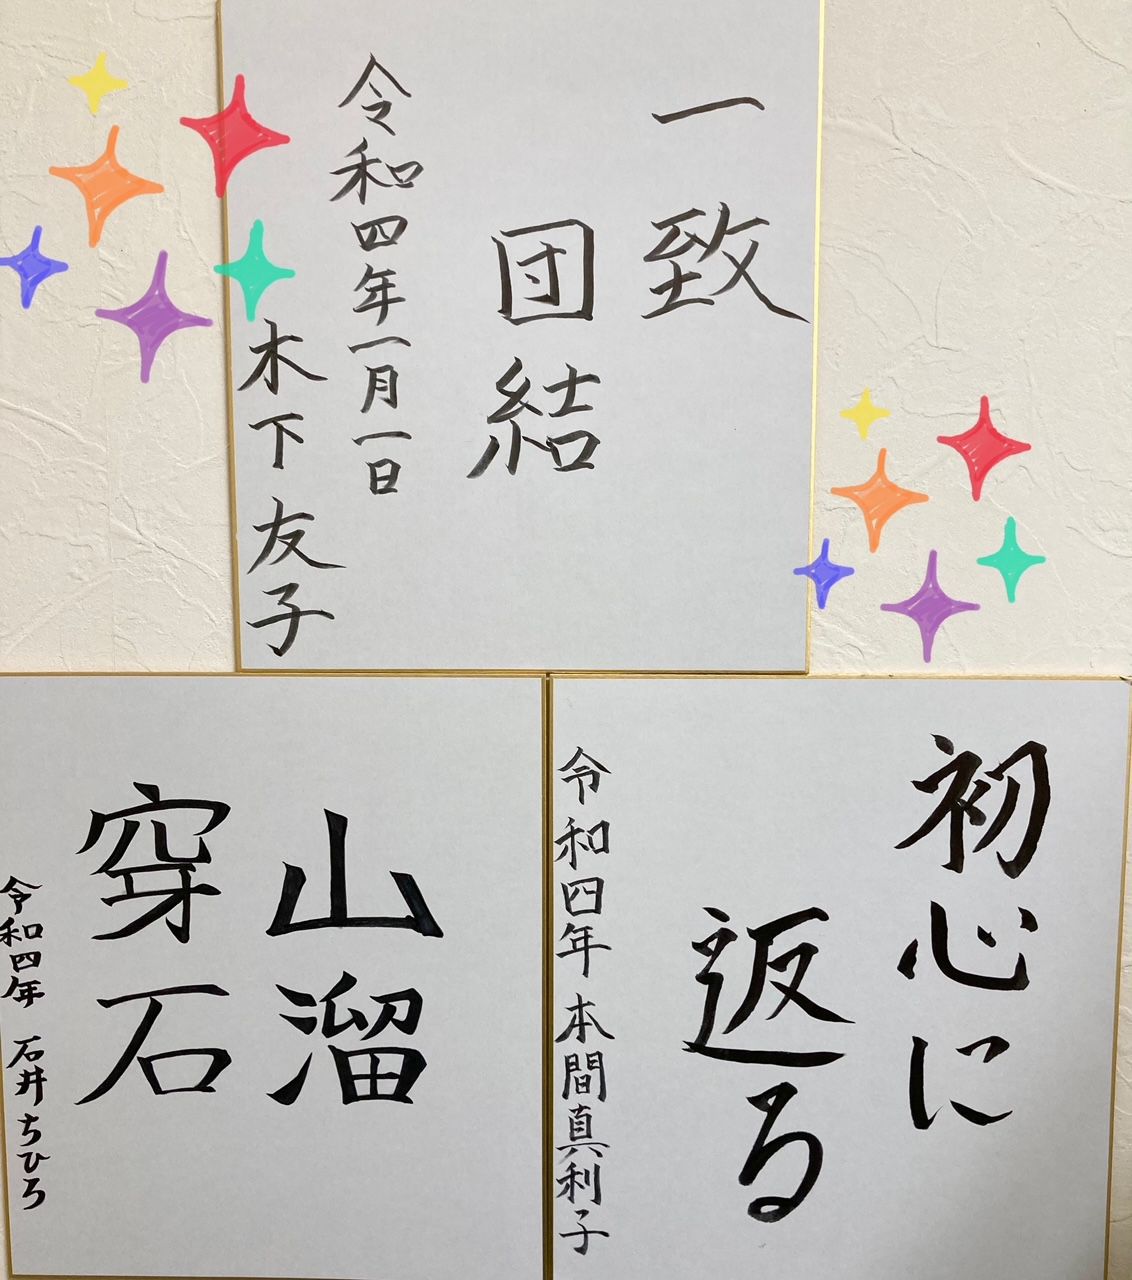 一致
団結
令和四年一月一日
木下友子
初心に
返る
令和四年 本間真利子
山溜
穿石
令和四年 石井ちひろ